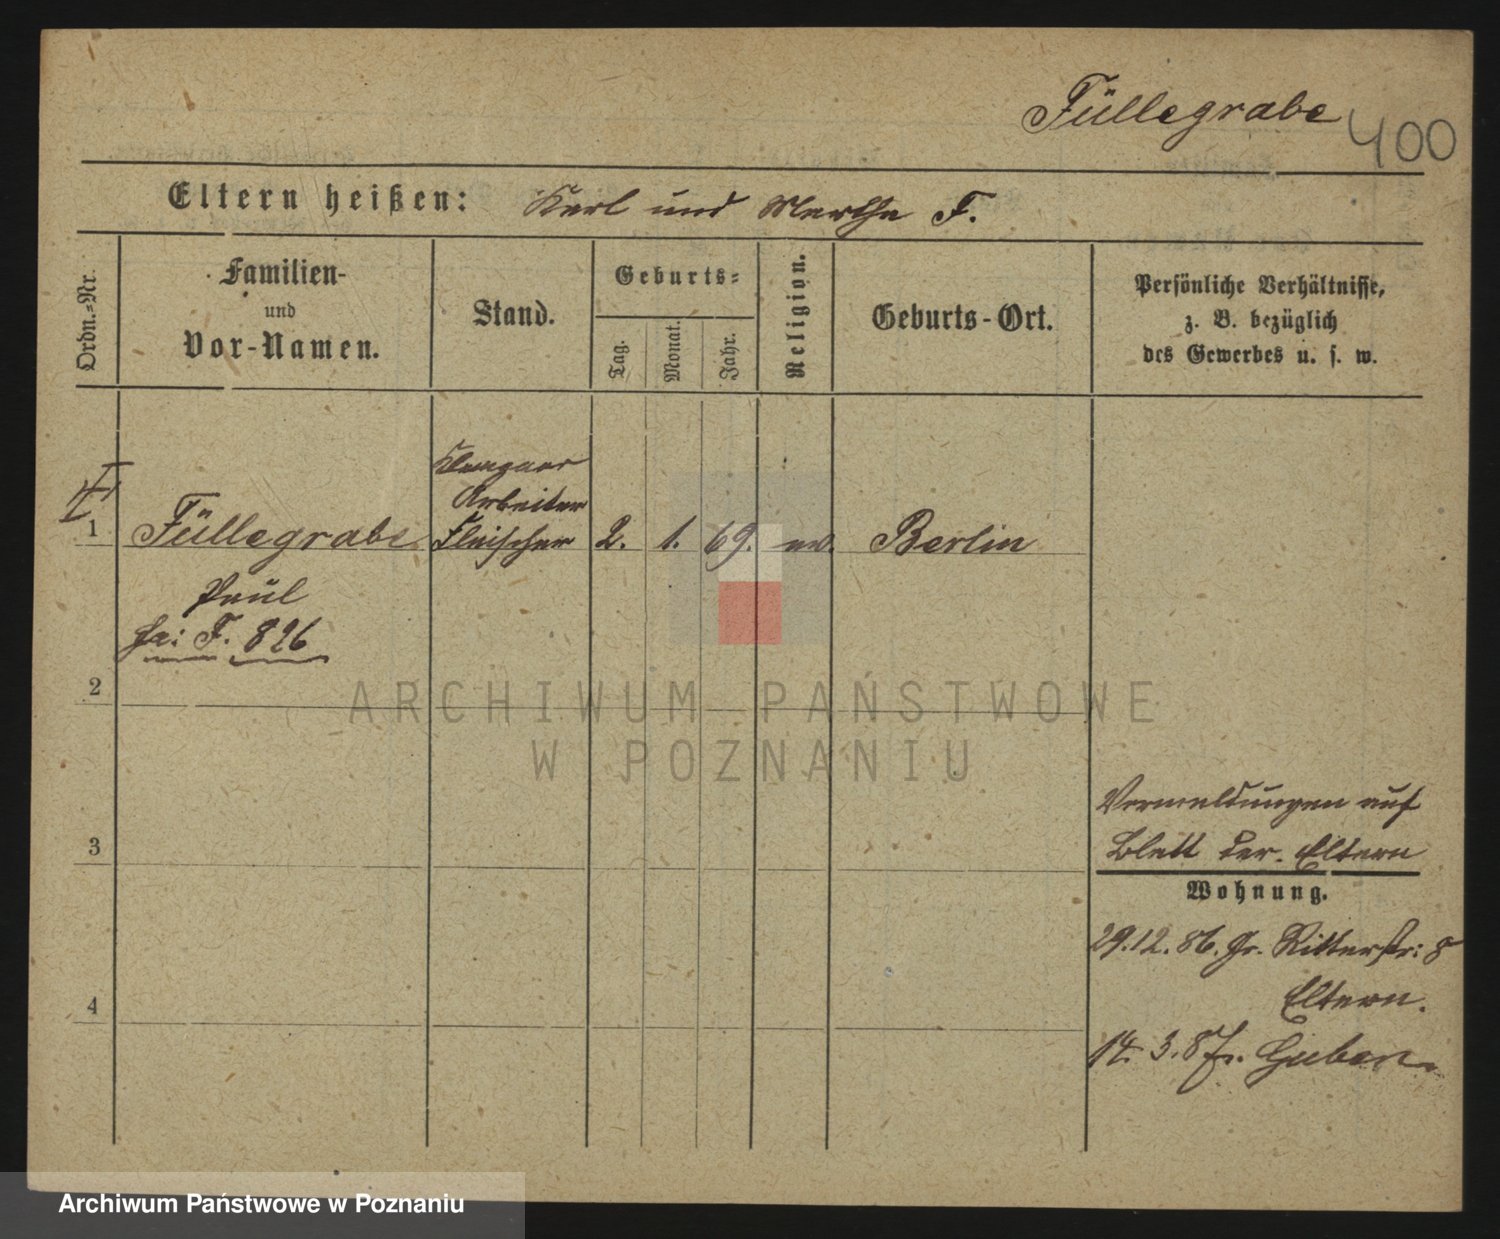 Füllegrabe 400
Eltern heißen: Karl und Martha F.
Ordn.=Nr.
Familien-
und
Vor-Namen.
Stand.
Geburts=
Tag.
Monat.
Jahr.
Religion.
Geburts-Ort.
Persönliche Verhältnisse,
z. B. bezüglich
des Gewerbes u. s. w.
Klempner
Arbeiter
1 Füllegrabe Fleischer 2. 1. 69. ev. Berlin
Paul
fa: F. 826
2
ARCHIWUM PAŃSTWOWE
W POZNANIU
Vermeldungen auf
3
Blatt der Eltern
Wohnung.
29.12.86. Gr. Ritterstr: 8
Eltern.
4
14. 3. 87. Guben.
Archiwum Państwowe w Poznaniu